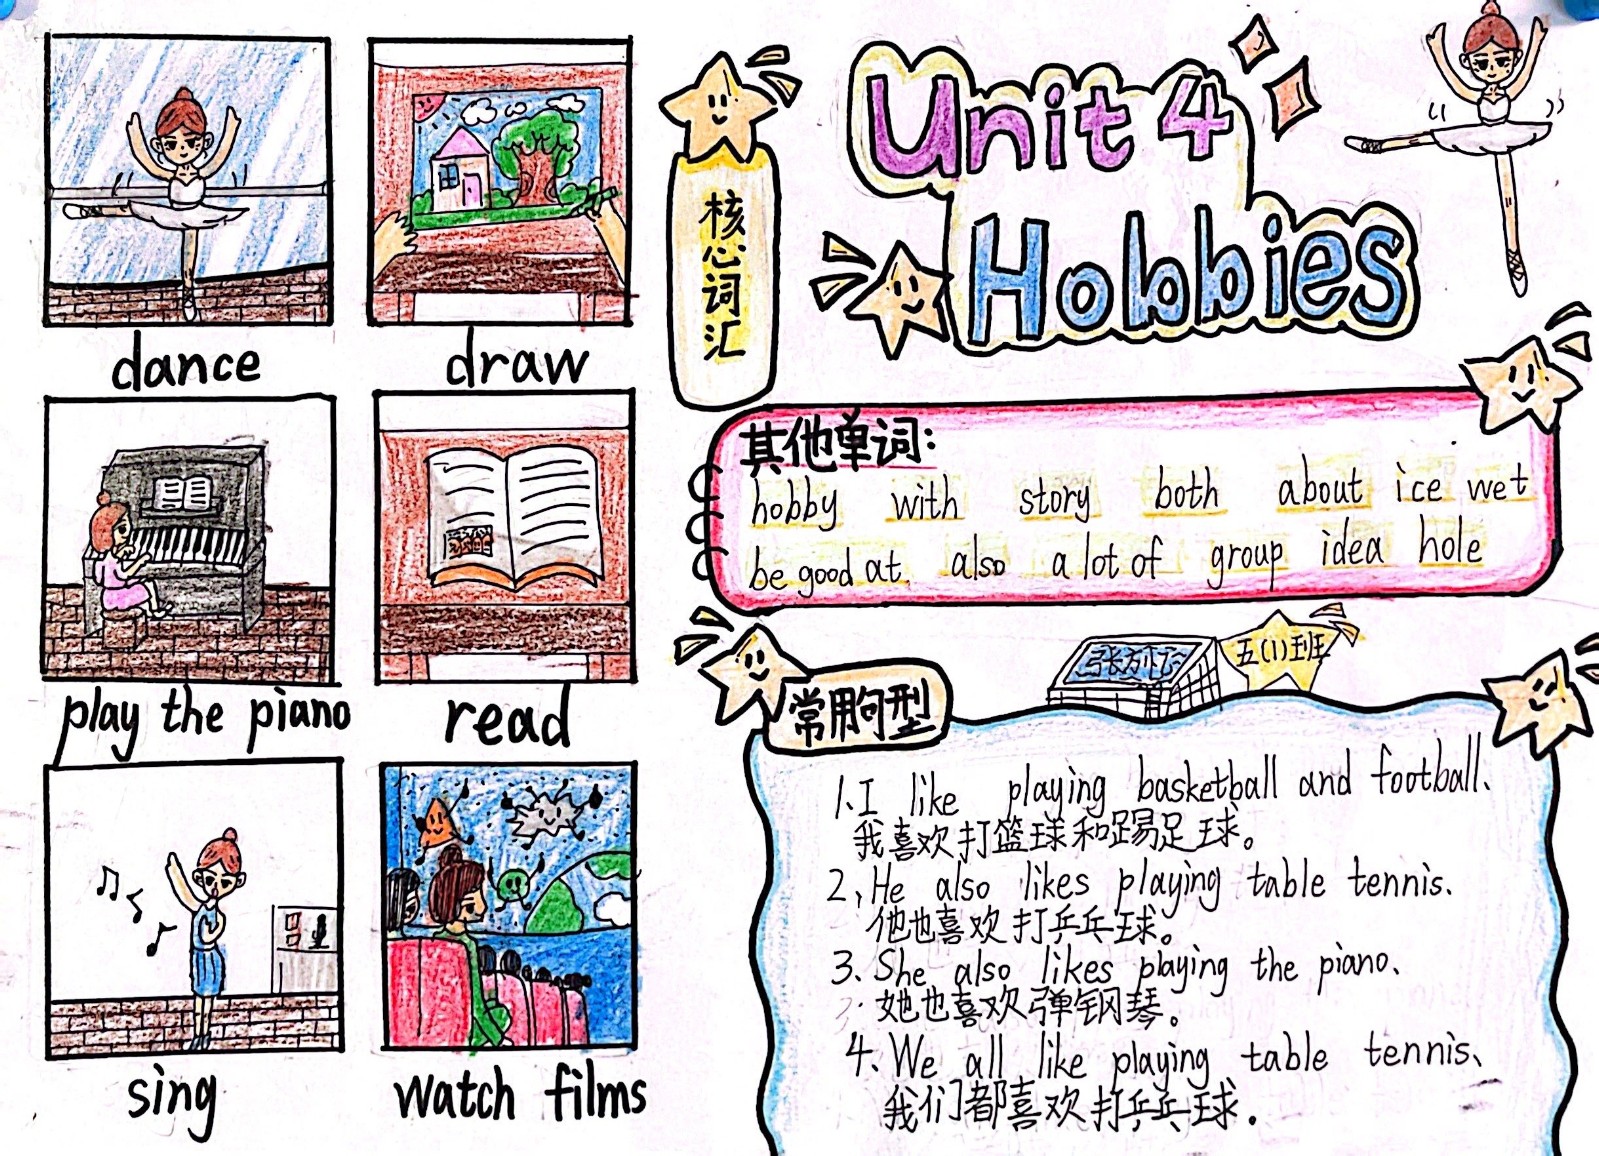 Unit 4
Hobbies
核心词汇
dance
draw
play the piano
read
sing
watch films
其他单词:
hobby with story both about ice wet
be good at also a lot of group idea hole
五(1)班
常用句型
1. I like playing basketball and football.
我喜欢打篮球和踢足球。
2, He also likes playing table tennis.
他也喜欢打乒乓球。
3. She also likes playing the piano.
她也喜欢弹钢琴。
4. We all like playing table tennis.
我们都喜欢打乒乓球.